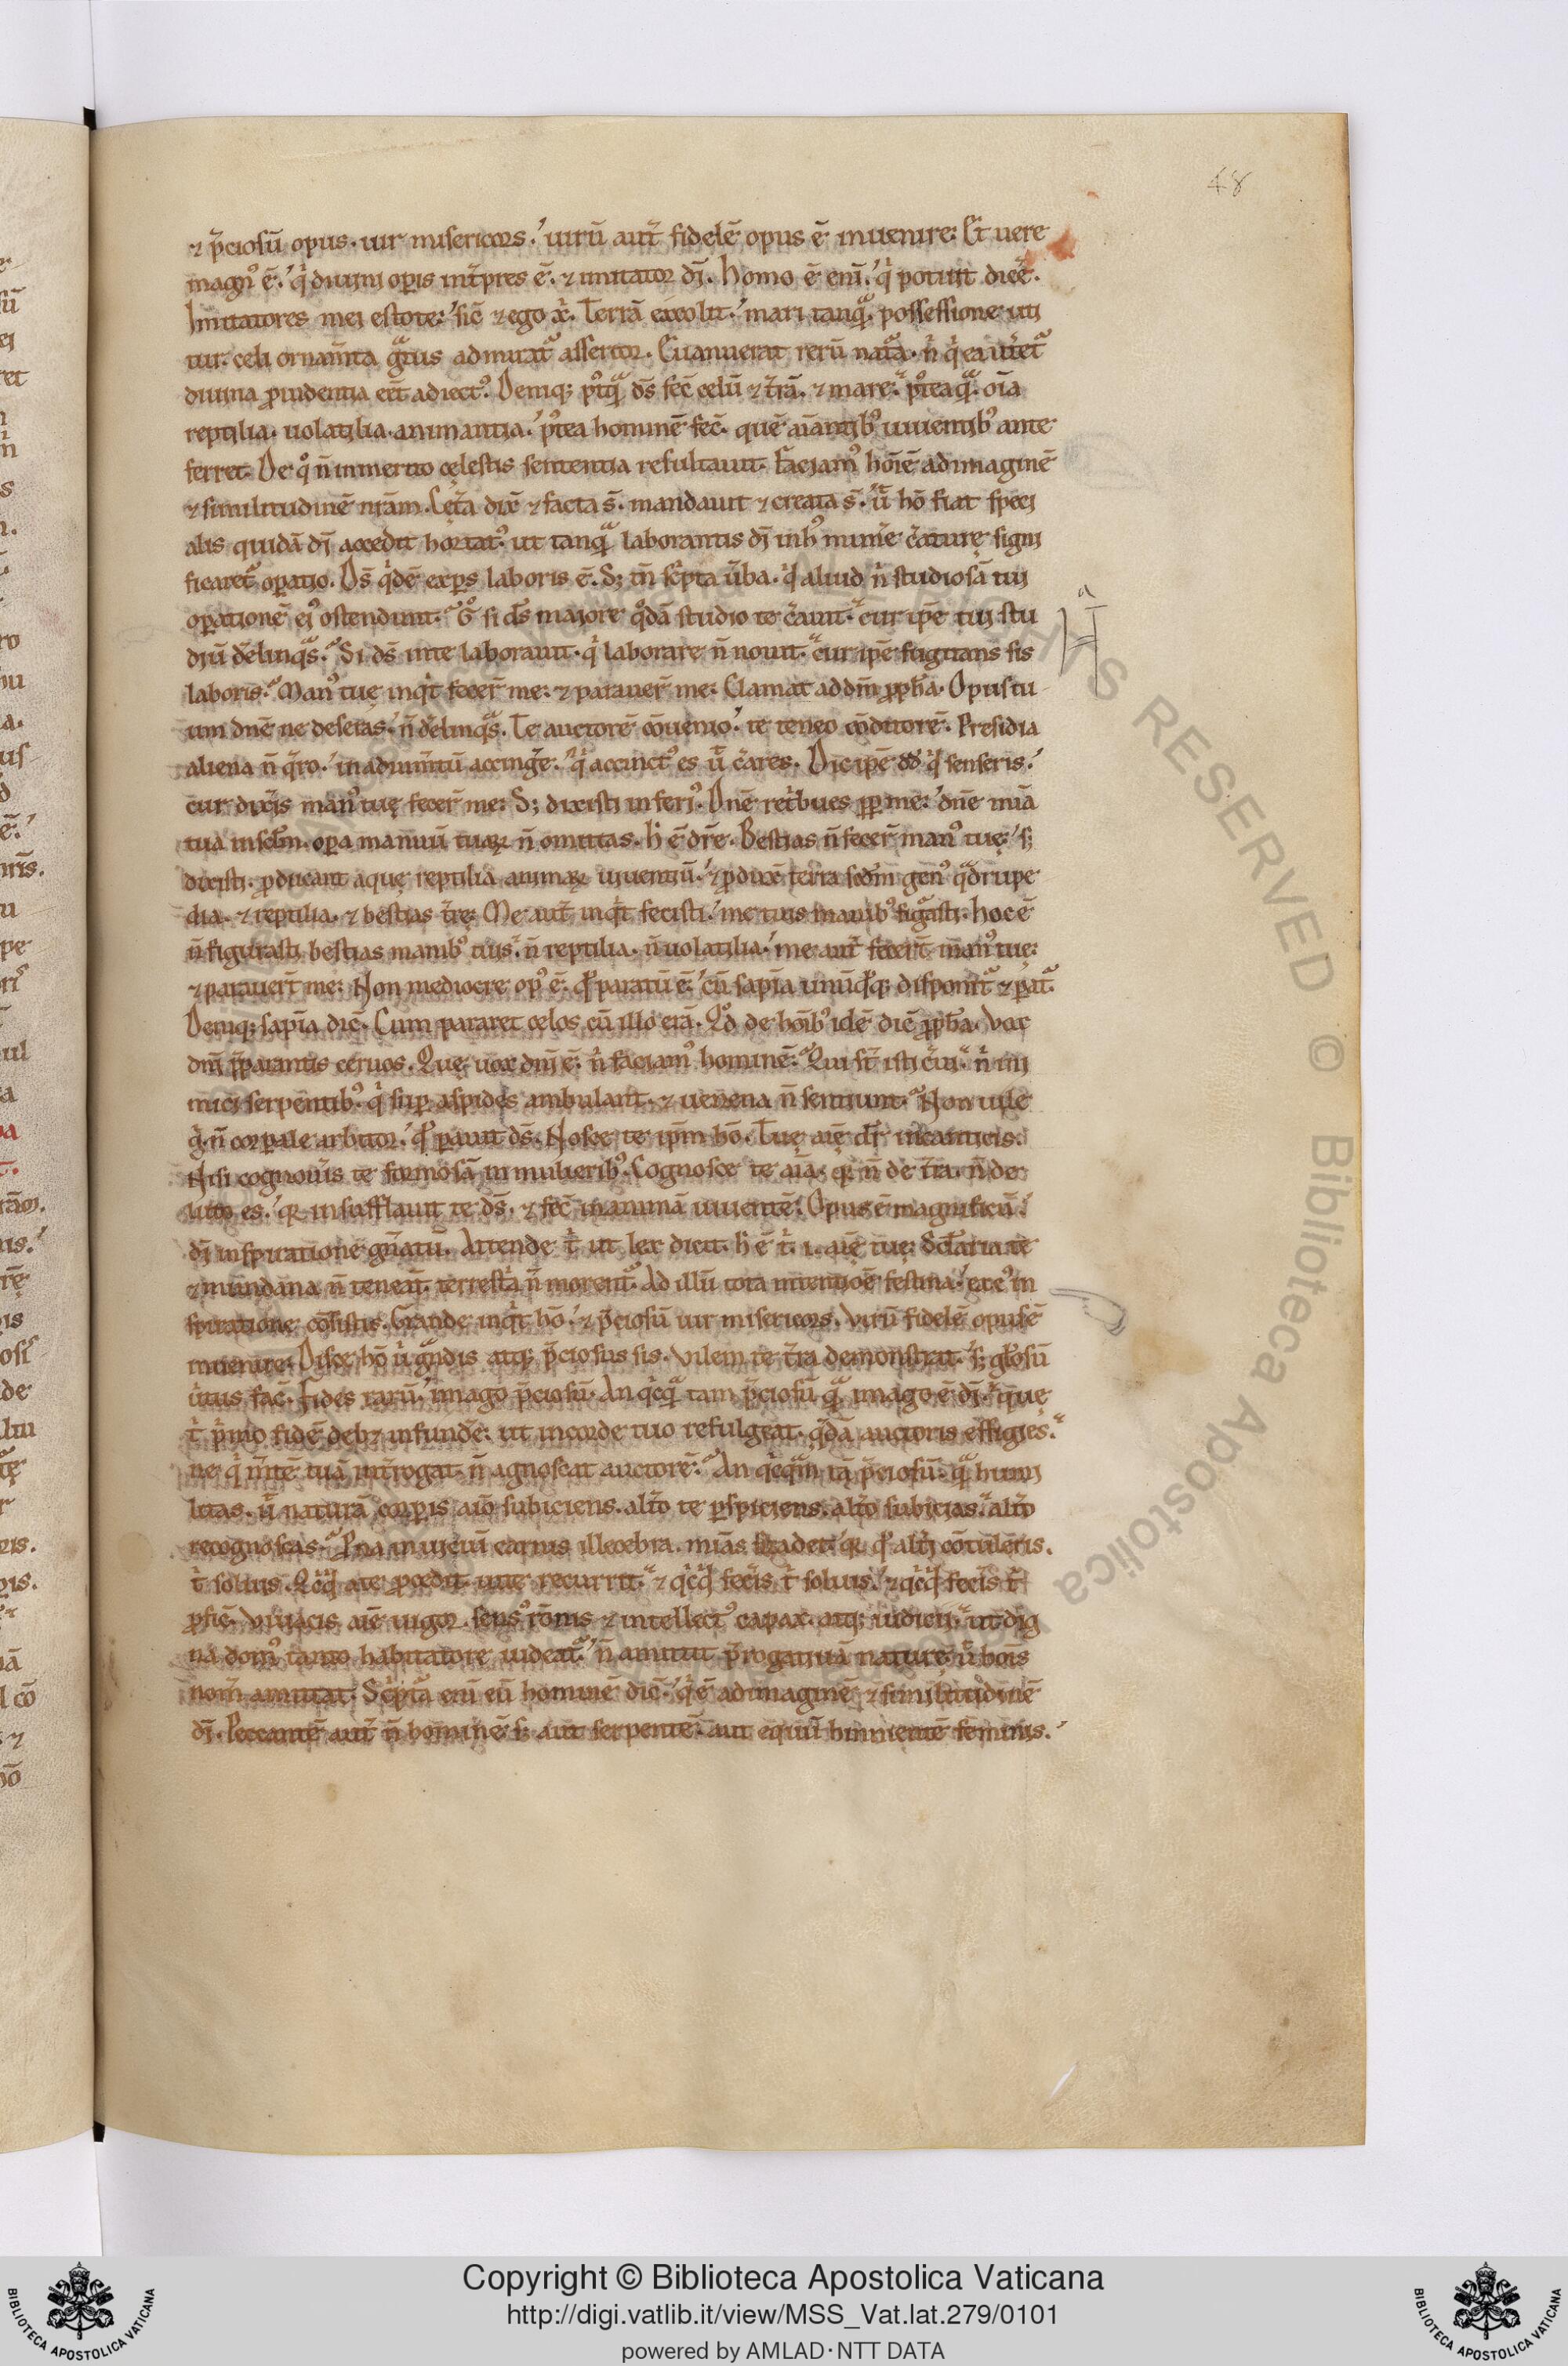 48
⁊ p̄ciosū opus. uir misericors. uirū aut̄ fidelē opus ē inuenire. Et uere
magn᷒ ē. q̇ diuini op̲is int̄pres ē. ⁊ imitator dī. Homo ē enī. q̇ potuit dice᷑.
Imitatores mei estote. sic̄ ⁊ ego x̄. Terrā excolit. mari tanq̄. possessione uti
tur. celi ornam̄ta gͣtius admirat᷑ assertor. Euanuerat rerū nat᷑a. n̄ q̇ ea utet᷑
diuina prudentia eēt adiect᷒. Deniq; p᷒tqͣ d̄s fec̄ celū ⁊ t̄rā. ⁊ mare. p᷒teaqͣ. oīa
reptilia. uolatilia. animantia. p᷒tea hominē fec̄. quē aīantib᷒ uiuentib᷒ ante
ferret. De qͦ n̄ inmerito cęlestis sententia resultauit. Faciam᷒ hoīē ad imaginē
⁊ similitudinē nr̄am. Cęt̄a dix̄ ⁊ facta s̄. mandauit ⁊ creata s̄. ū hō fiat speci
alis quidā dī accedit hortat᷒. ut tanqͣ laborantis dī in h᷒ mun̄e c̄aturę signi
ficaret᷑ op̲atio. D̄s q̇dē exp̲s laboris ē. S; tn̄ sc̄pta ūba. q̇ aliud n̄ studiosā tui
op̲ationē ei᷒ ostendunt. Gͦ si d̄s maiore qͦdā studio te c̄auit. cur ip̄e tui stu
diū delinqͣs. Si d̄s in te laborauit. q̇ laborare n̄ nouit. cur ip̄e fugitans sis
laboris. Man᷒ tuę inq̇t fecer̄ me. ⁊ parauer̄ me. Clamat ad dm̄ ꝓph̄a. Opus tu
um dn̄e ne deseras. n̄ delinqͣs. Te auctorē cōuenio. te teneo cōditorē. Presidia
aliena n̄ q̄ro. in adium̄tū accing᷑e. q̇ accinct᷒ es ū c̄ares. Dic ip̄e dd̄ q̇ senseris.
cur dix̄is man᷒ tuę fecer̄ me. S; dixisti inferi᷒. Dn̄e ret̄bues ꝓp me. dn̄e mīa
tua in sc̄lm. op̲a manuū tuaꝝ n̄ omittas. h̄ ē dr̄e. Bestias n̄ fecer̄ man᷒ tuę. s;
dixisti. ꝓducant aquę reptilia animaꝝ uiuentiū. ⁊ ꝓdux̄ terra sc̄dm gen᷒ qͣdrupe
dia. ⁊ reptilia. ⁊ bestias t̄rę. Me aut̄ inq̇t fecisti. me tuis manib᷒ figͣasti. hoc ē
n̄ figurasti bestias manib᷒ tuis. n̄ reptilia. n̄ uolatilia. me aut̄ fecer̄t man᷒ tuę.
⁊ parauer̄t me. Non mediocre op᷒ ē. qͦ paratū ē. cū sapīa unūqͦq; disponit᷑ ⁊ p̲at᷑.
Deniq; sapīa dic̄. Cum pararet celos cū illo erā. Qͦd de hoīb᷒ idē dic̄ ꝓph̄a. Vox
dm̄ p̄parantis ceruos. Quę uox dm̄ ē. n̄ faciam᷒ hominē. Qui st̄ isti c̄ui. n̄ ini
mici serpentib᷒. q̇ sup̲ aspides ambulant. ⁊ uenena n̄ sentiunt. Non uile
g̊. n̄ corp̲ale arbitor. qͦ p̲auit d̄s. Nosce te ip̄m hō. Tuę aīę dr̄ in canticis.
Nisi cognou̓is te formosā in mulierib᷒. Cognosce te aīa. qꝛ n̄ de t̄ra. n̄ de
luto es. qꝛ insufflauit te d̄s. ⁊ fec̄ in animā uiuentē. Opus ē magnificū.
dī inspiratione gn̄atū. Attende t̄ ut lex dicit. h̄ ē t̄. i. aīę tuę.
⁊ mundana n̄ teneāt. terrest᷑a n̄ morent᷑. Ad illū tota intentiōe festina. ex e᷒ in
spiratione cōsistis. Grande inq̇t hō. ⁊ p̄ciosū uir misericors. Virū fidelē opus ē
inuenire. Disce hō ū gͣndis atq; p̄ciosus sis. Vilem te t̄ra demonstrat. s; gl̄osū
ūtus fac̄. fides rarū. imago p̄ciosū. An q̇cqͣ tam p̄ciosū qͣ imago ē dī. quę
t̄ p̄mo fidē debꝫ infund᷑e. ut in corde tuo refulgeat. q̄dā auctoris effigies.
ne q̇ m̄tē tuā int̄rogat. n̄ agnoscat auctorē. An q̇cqͣm tā p̄ciosū. qͣ humi
litas. ū naturā corp̲is aīo subiciens. alt̄o te p̲spiciens. alt̄o subicias. alt̄o
recognoscas. Pna in uiciū carnis illecebra. mīas qꝛ qͦ alt̄i cōtuleris.
t̄ soluis. Q̇cq̇ a te ꝓcedit in te recurrit. ⁊ q̇cq̇ fec̄is t̄ soluis. ⁊ q̇cq̇ fec̄is t̄
ꝓfic̄. Viuacis aīę uigor. sens᷒ rōnis ⁊ intellect᷒ capax. atq; iudicii. ut dig
na dom᷒ tanto habitatore uideat᷑. n̄ amittit p̄rogatiuā naturę. ū hoīs
nom̄ amittat. Sc̄pt᷑a enī eū hominē dic̄. q̇ ē ad imaginē ⁊ similitudinē
dī. Peccantē aut̄ n̄ hominē. s; aut serpentē. aut equū hinnientē feminis.
Copyright © Biblioteca Apostolica Vaticana
http://digi.vatlib.it/view/MSS_Vat.lat.279/0101
powered by AMLAD·NTT DATA
BIBLIOTECA APOSTOLICA VATICANA
BIBLIOTECA APOSTOLICA VATICANA